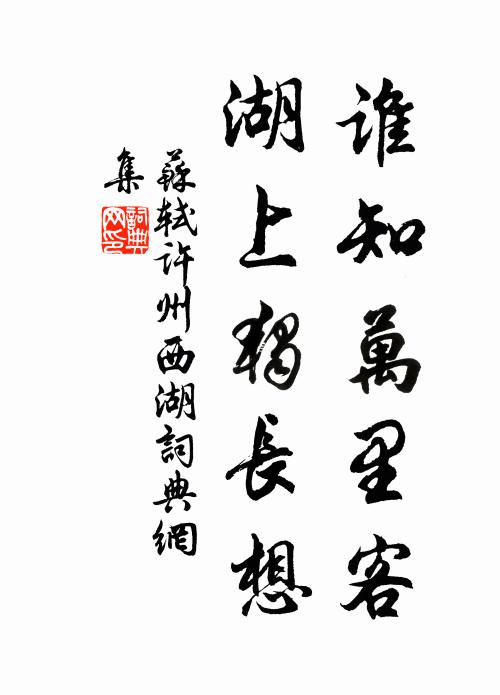 谁知萬里客
湖上獨長想
蘇軾許州西湖詞典網
集
詞典
网印